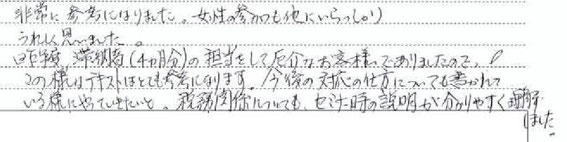 非常に参考になりました。女性の参加も他にいらっしゃり
うれしく思いました。
昨年度 滞納者(4ヵ月分)の担当をして厄介なお客様でありましたので、
この様なテキストはとても参考になります。今後の対応の仕方についても書かれて
いる様にやっていきたいと。税務関係についても、セミナー時の説明が分かりやすく理解
しました。